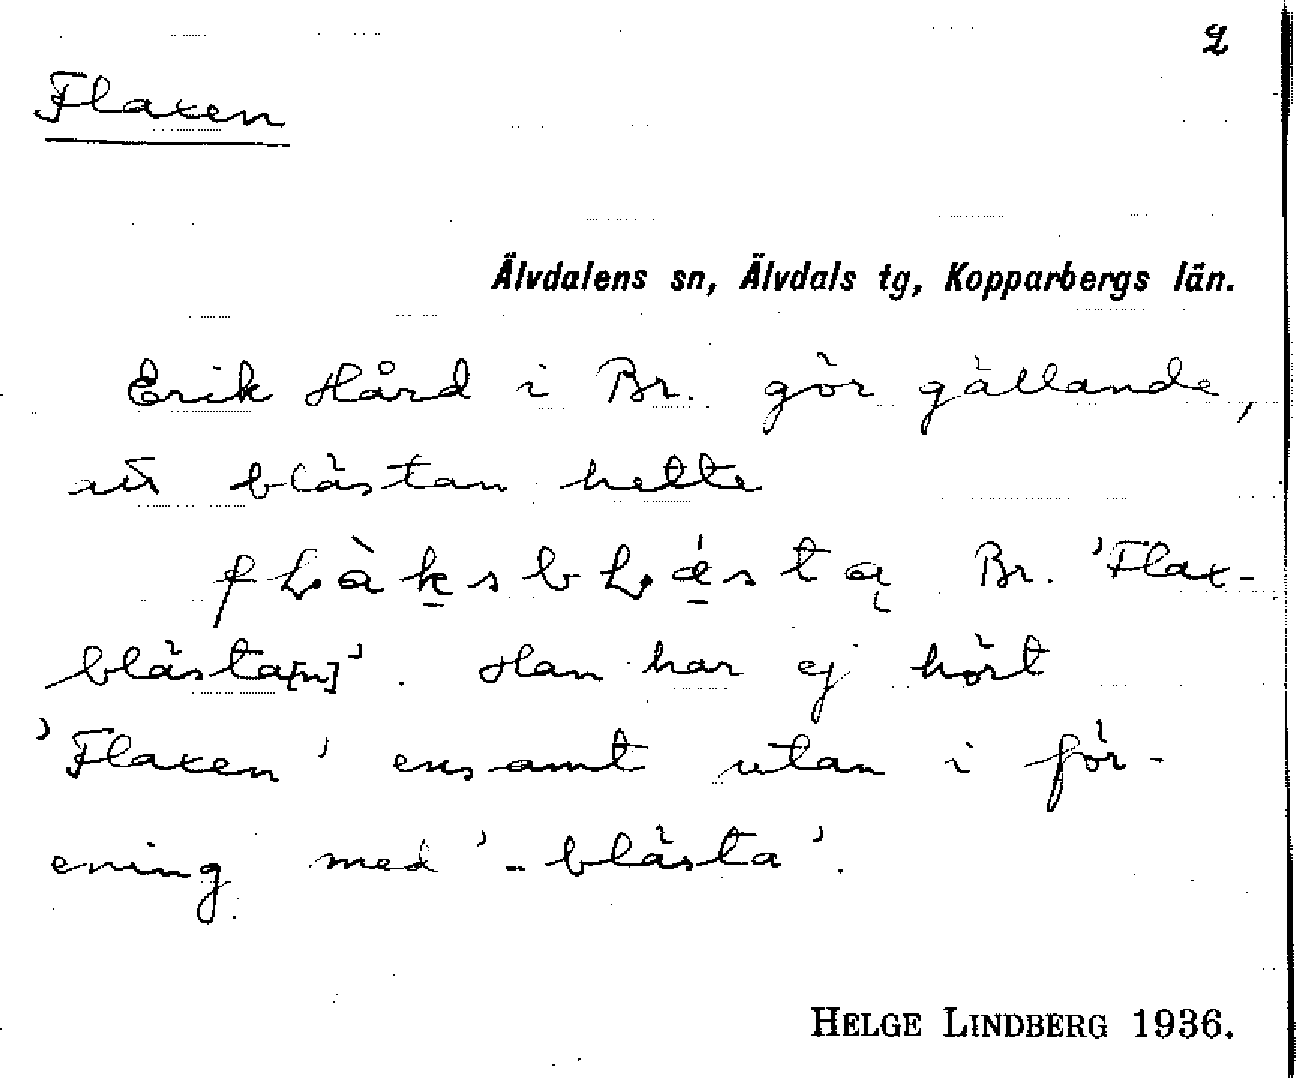 2
Flaxen
Älvdalens sn, Älvdals tg, Kopparbergs län.
Erik Hård i Br. gör gällande,
att blästan hette
Br. 'Flax-
blästa[n]'. Han har ej hört
'Flaxen' ensamt utan i för-
ening med '-blästa'.
HELGE LINDBERG 1936.